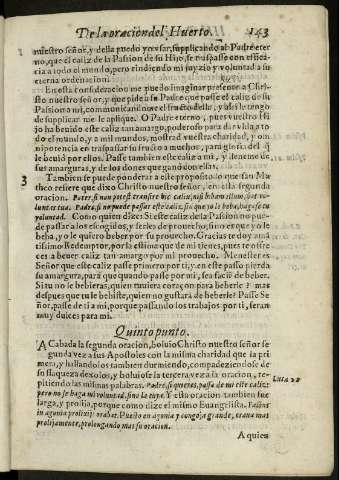 De la oracion del Huerto. 143
nuestro señor, y della puedo yo vsar, suplicando al Padre eter
no, que el caliz de la Passion de su Hijo, se traspasse con efica-
cia a todo el mundo, pero rindiendo mi juyzio y voluntad a su
eterna ordenacion.
En esta consideracion me puedo imaginar presente a Chri-
sto nuestro señor, y que pide a su Padre que passe el caliz de su
Passion a mi, comunicandome el fructo della, y assi le tengo
de suplicar me le aplique. O Padre eterno, pues vuestro Hi-
jo ha beuido este caliz tan amargo, poderoso para dar vida a to-
do el mundo, y a mil mundos, mostrad vuestra charidad, y om
nipotencia en traspassar su fructo a muchos, para gloria del q̃
le beuió por ellos. Passe tambien este caliz a mi, y lleneme de
sus amarguras, y de los dones que ganó con ellas.
3 Tambien se puede ponderar a este proposito lo que san Ma
theo refiere que dixo Christo nuestro señor, en esta segunda
oracion. Pater, si non potest transire hic calix, nisi bibam illum, fiat vo-
luntas tua. Padre, si no puede passar este caliz, sin que yo le beba, hagase tu
voluntad. Como quien dize: Si este caliz de la Passion no pue-
de passar a los escogidos, y serles de prouecho, sino es que yo le
beba, yo le quiero beber por su prouecho. Gracias te doy ama
tissimo Redemptor, por la estima que de mi tienes, pues te ofre
ces a beuer caliz tan amargo por mi prouecho. Menester es
Señor que este caliz passe primero por ti, y en este passo pierda
su amargura, para que quando passe por mi, sea facil de beber.
Si tu no le bebieras, quien tuuiera coraçon para beberle? mas
despues que tu le bebiste, quien no gustará de beberle? Passe Se
ñor, passe de ti a mi, porque passando los trabajos por ti, seran
muy dulces para mi.
Quinto punto.
ACabada la segunda oracion, boluio Christo nuestro señor se
gunda vez a sus Apostoles con la misma charidad que la pri
mera, y hallandolos tambien durmiendo, compadeziendose de
su flaqueza dexolos, y boluiose la tercera vez a la oracion, re-
pitiendo las mismas palabras. Padre, si quieres, passa de mi este caliz:
pero no se haga mi voluntad, sino la tuya. Y esta oracion tambien fue
larga, y prolixa, porque como dize el mismo Euangelista. Factus
in agonia prolixiùs orabat. Puesto en agonia y congoja grande, oraua mas
prolijamente, prolongando mas su oracion.
Luca 22
A quien